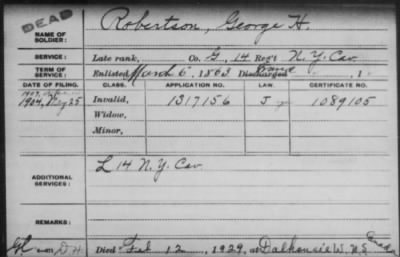 DEAD
NAME OF SOLDIER:
Robertson, George H.
SERVICE:
Late rank, Co. G, 14 Regt N.Y. Cav.
TERM OF SERVICE:
Enlisted March 6, 1863 Discharged , 1
DATE OF FILING. CLASS. APPLICATION NO. LAW. CERTIFICATE NO.
1904, May 25 Invalid, 1317156 J 1089105
Widow,
Minor,
ADDITIONAL SERVICES:
L 14 N.Y. Cav.
REMARKS:
Died Feb 12, 1929, at Dalhousie W. N.S. Canada